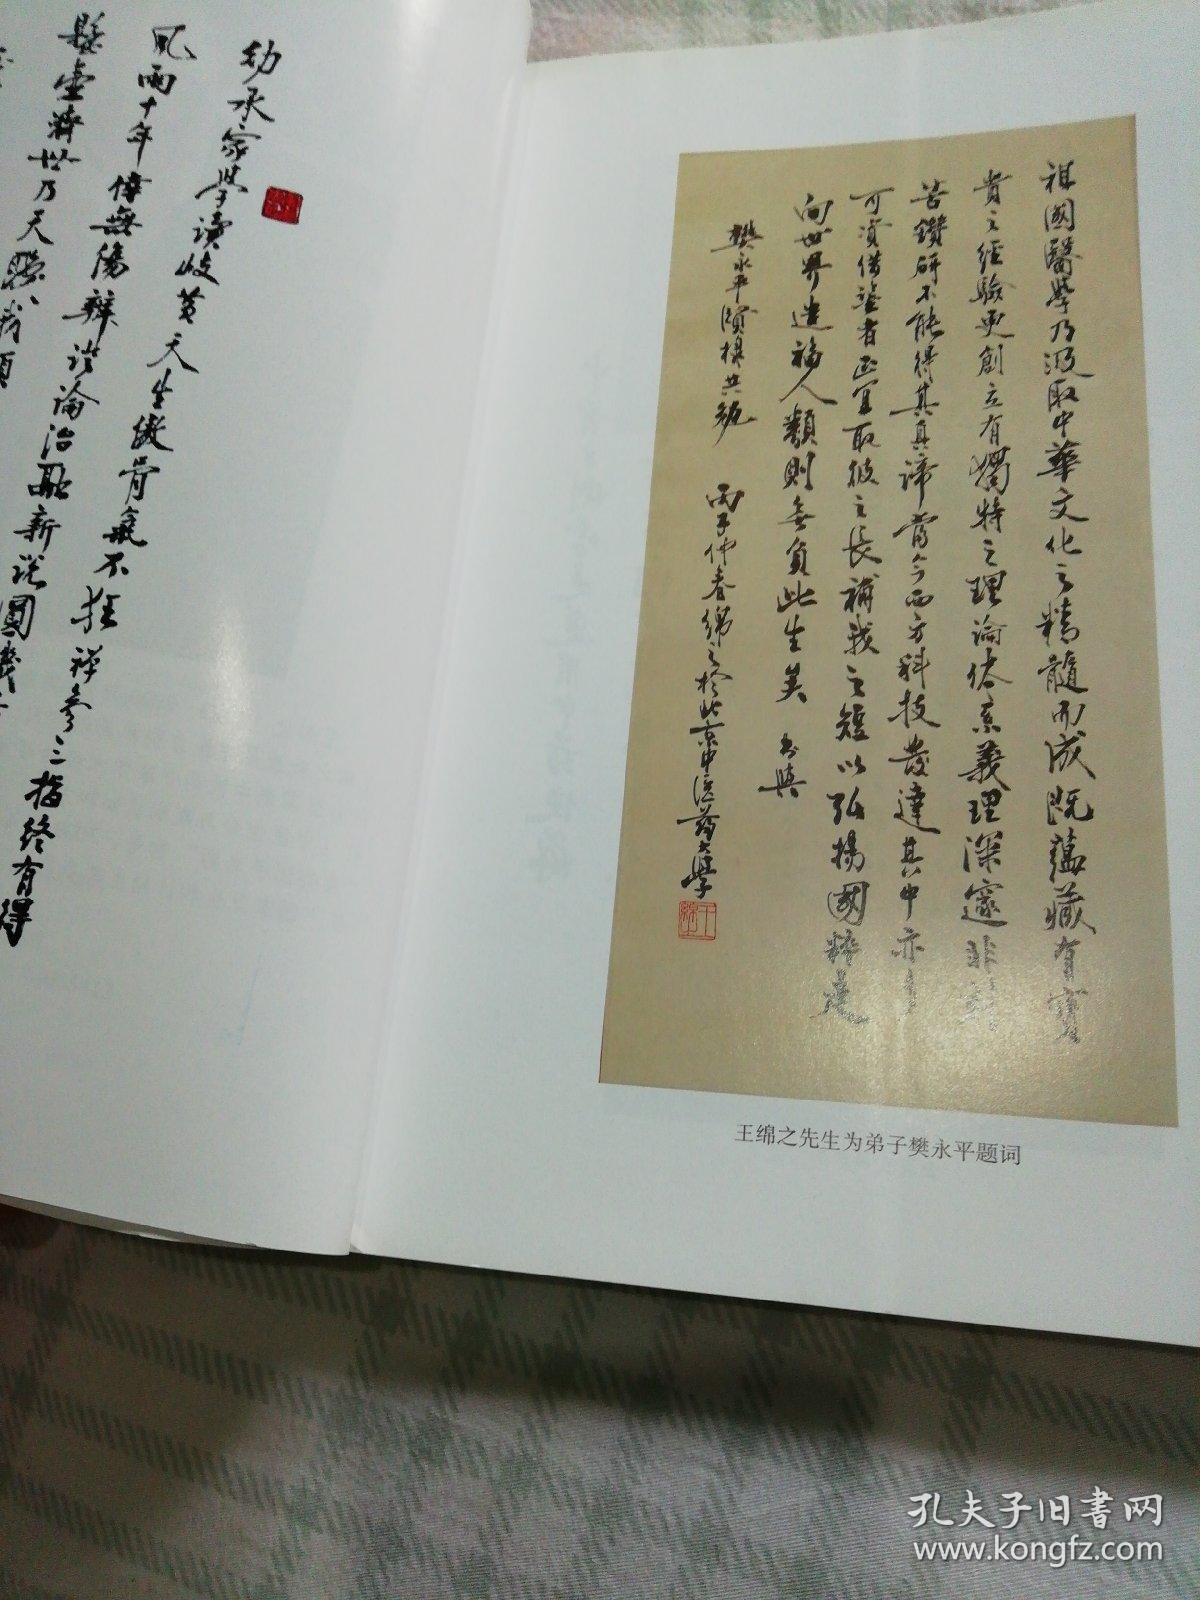 幼承家學讀岐黄天生傲骨氣不狂禪參三指終有得
風雨十年偉無傷辨证論治融新说圓機
懸壺濟世乃天賜我願
祖國醫學乃汲取中華文化之精髓而成既蘊藏有寶
貴之經驗更創立有獨特之理論体系義理深邃非刻
苦鑽研不能得其真谛當今西方科技發達其中亦多
可资借鉴者正宜取彼之長補我之短以弘揚國粹走
向世界造福人類則無負此生矣 书與
樊永平賢棣共勉 丙子仲春綿之於北京中医药大學
王绵之先生为弟子樊永平题词
孔夫子旧书网
www.kongfz.com